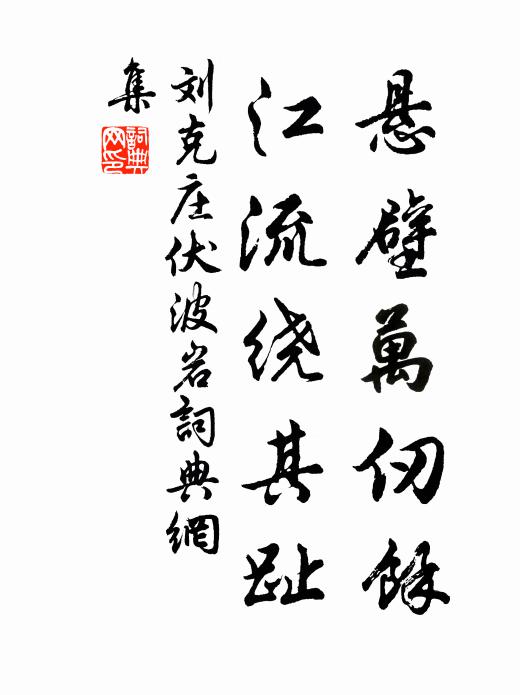 悬壁萬仞餘
江流绕其趾
刘克庄伏波岩詞典網
集
詞典网印